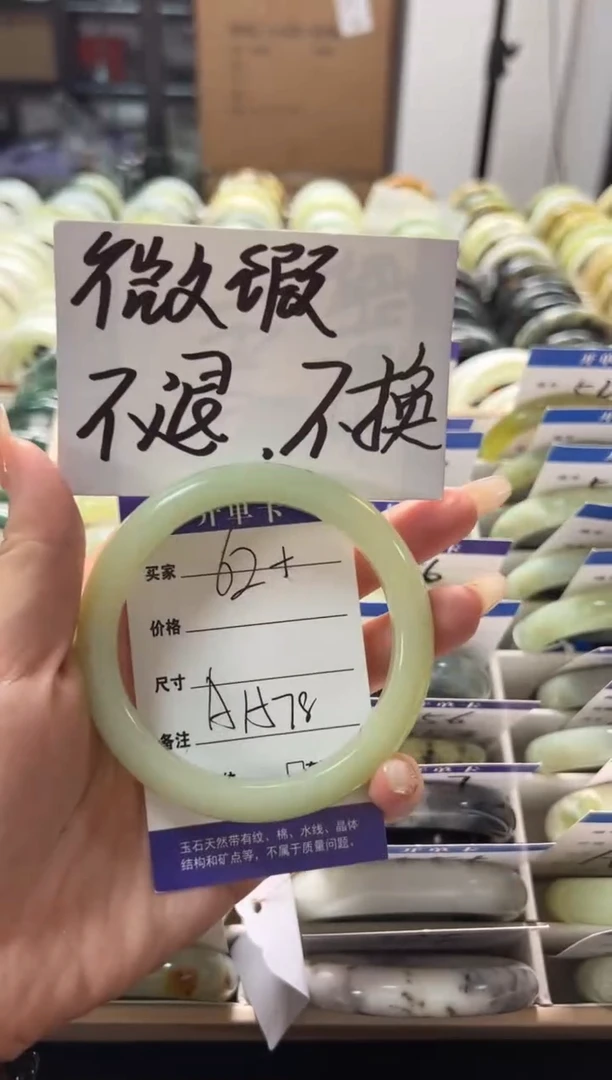 微瑕
不退.不换
开单卡
买家 62+
价格
尺寸 AH78
备注
玉石天然带有纹、棉、水线、晶体
结构和矿点等，不属于质量问题。